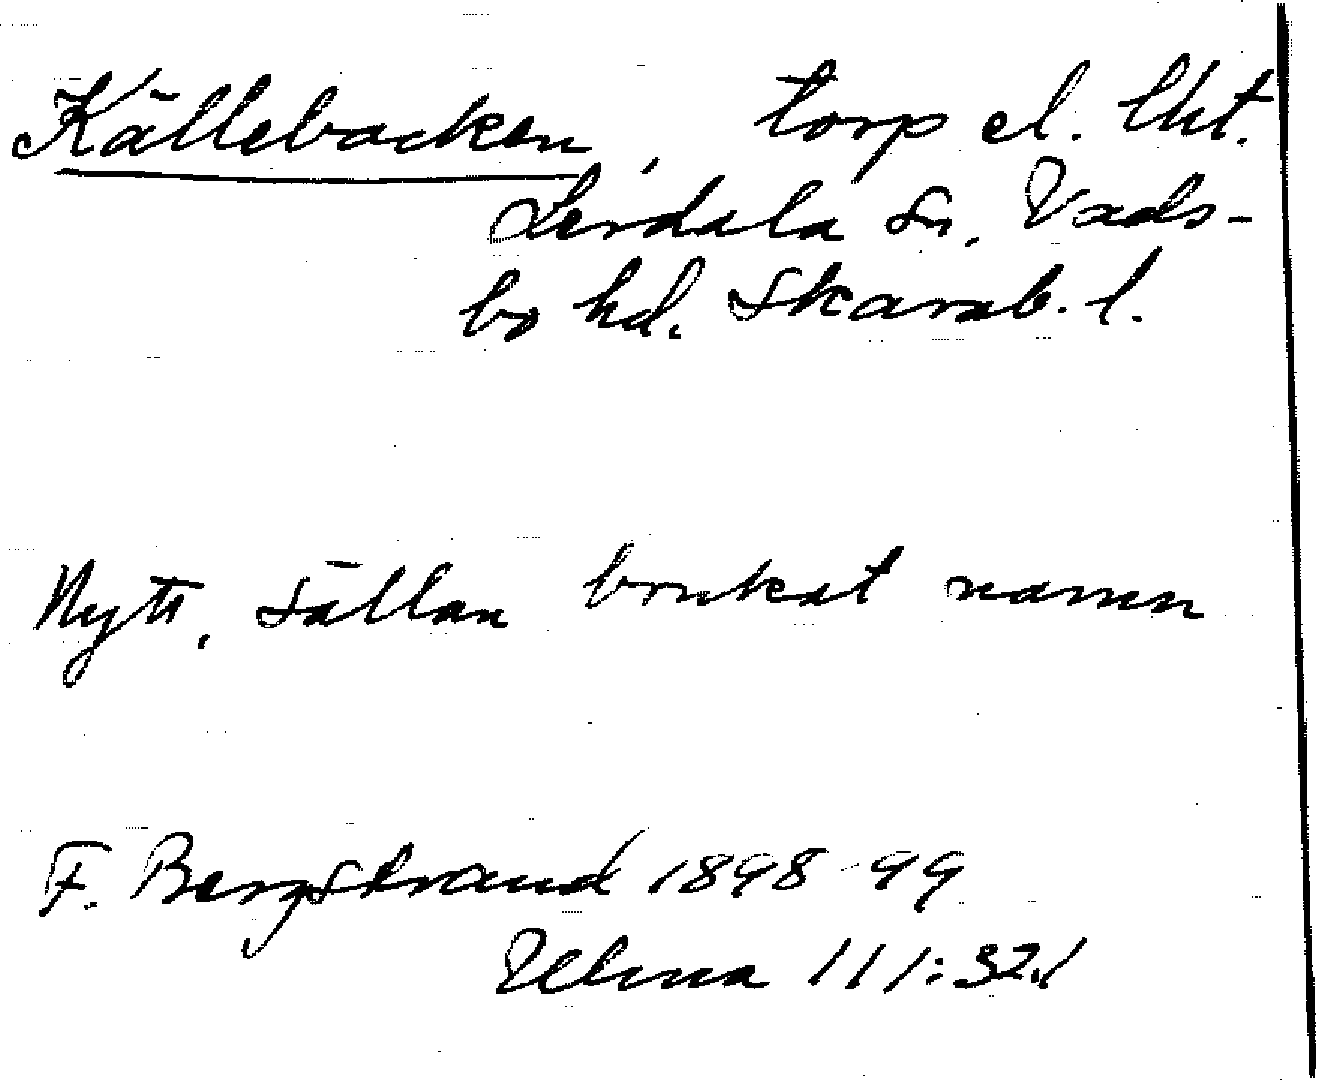 Källebacken, torp el. lht.
Lerdala sn, Vads-
bo hd. Skarab. l.
Nytt, sällan brukat namn
F. Bergstrand 1898-99
Ulma 111:321